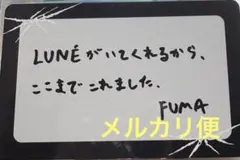 LUNÉがいてくれるから、
ここまでこれました。
FUMA
メルカリ便